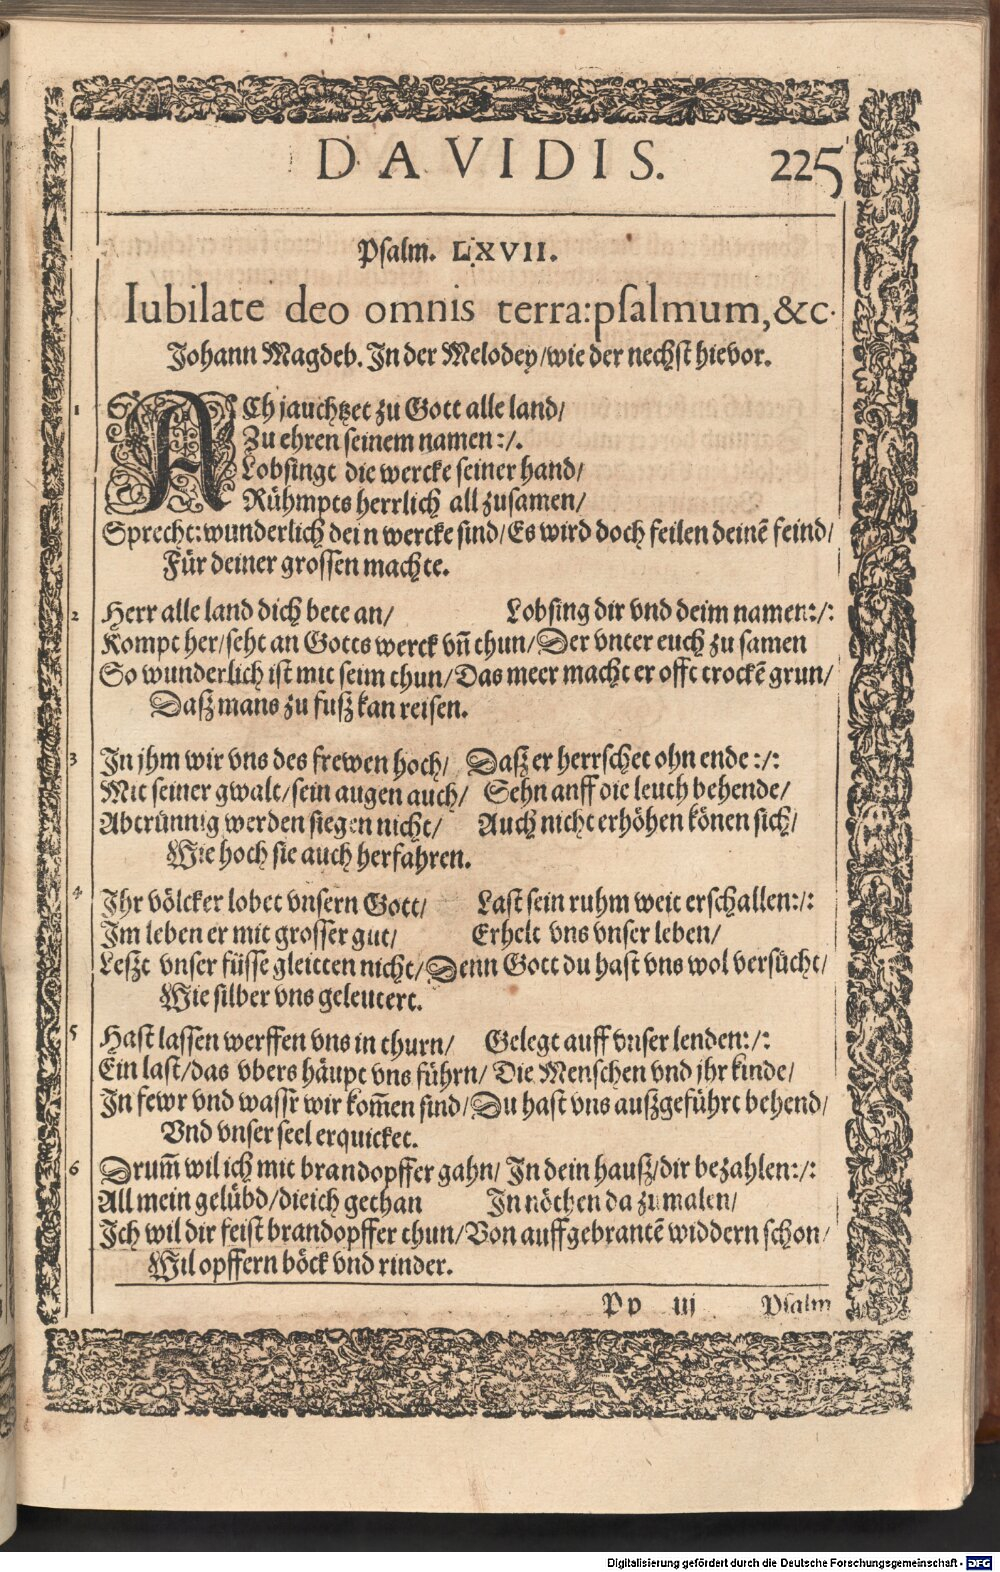 DAVIDIS. 225
Psalm. LXVII.
Iubilate deo omnis terra:psalmum,&c.
Johann Magdeb. In der Melodey/wie der nechst hievor.
1 ACh jauchtzet zu Gott alle land/
Zu ehren seinem namen:/.
Lobsingt die wercke seiner hand/
Rühmpts herrlich all zusamen/
Sprecht:wunderlich dein wercke sind/Es wird doch feilen deinē feind/
Für deiner grossen machte.
2 Herr alle land dich bete an/ Lobsing dir vnd deim namen:/:
Kompt her/seht an Gotts werck vn̄ thun/Der vnter euch zu samen
So wunderlich ist mit seim thun/Das meer macht er offt trockē grun/
Dasz mans zu fusz kan reisen.
3 In jhm wir vns des frewen hoch/ Dasz er herrschet ohn ende:/:
Mit seiner gwalt/sein augen auch/ Sehn anff die leuth behende/
Abtrünnig werden siegen nicht/ Auch nicht erhöhen könen sich/
Wie hoch sie auch herfahren.
4 Ihr völcker lobet vnsern Gott/ Last sein ruhm weit erschallen:/:
Im leben er mit grosser gut/ Erhelt vns vnser leben/
Leszt vnser füsse gleitten nicht/Denn Gott du hast vns wol versücht/
Wie silber vns geleutert.
5 Hast lassen werffen vns in thurn/ Gelegt auff vnser lenden:/:
Ein last/das vbers häupt vns führn/Die Menschen vnd jhr kinde/
In fewr vnd wassr wir kom̄en sind/Du hast vns auszgeführt behend/
Vnd vnser seel erquicket.
6 Drum̄ wil ich mit brandopffer gahn/In dein hausz/dir bezahlen:/:
All mein gelübd/die ich gethan In nöthen da zu malen/
Ich wil dir feist brandopffer thun/Von auffgebrantē widdern schon/
Wil opffern böck vnd rinder.
Pp iij Psalm
Digitalisierung gefördert durch die Deutsche Forschungsgemeinschaft - DFG